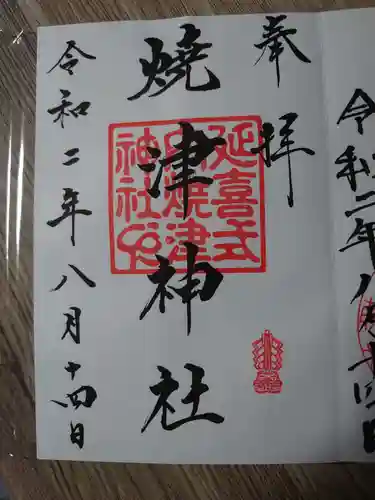 令和二年八月十四日
奉拝
燒津神社
延喜式
内燒津
神社印
令和二年八月十四日